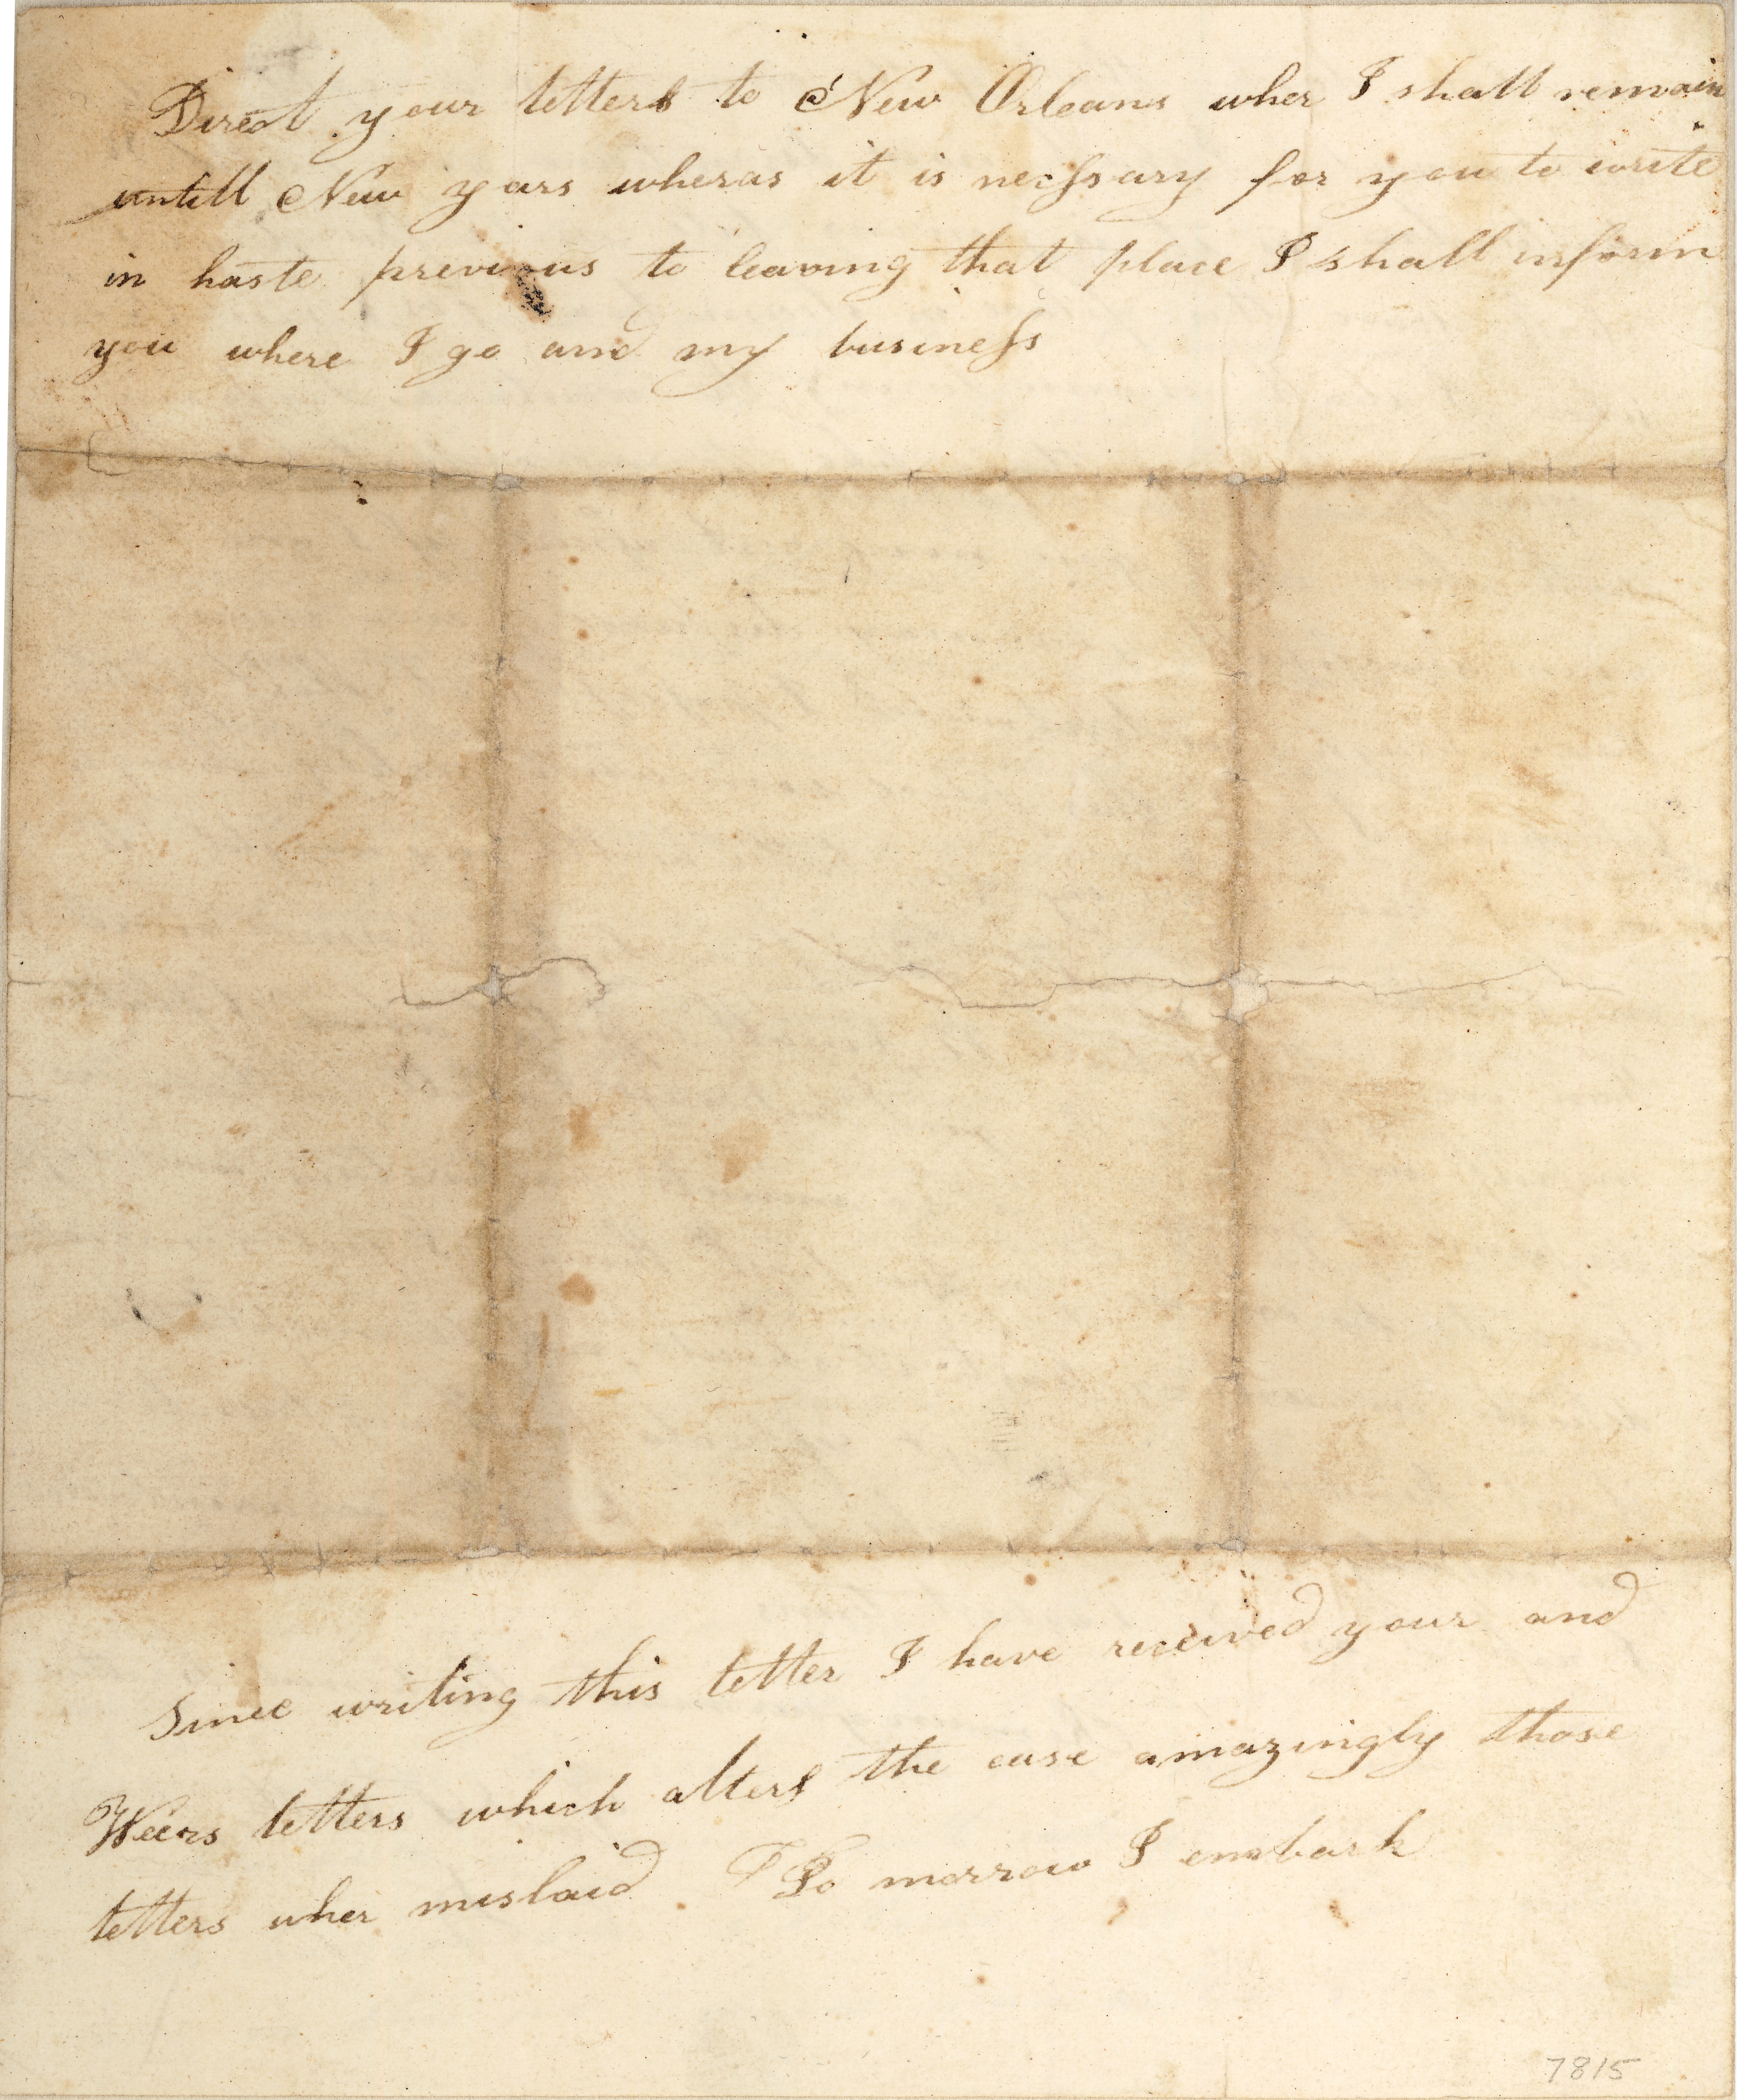 Direct your letters to New Orleans wher I shall remain
untill New yars wheras it is necessary for you to write
in haste previous to leaving that place I shall inform
you where I go and my business
Since writing this letter I have received your and
Weers letters which alters the case amazingly those
letters wher mislaid To morrow I embark
7815